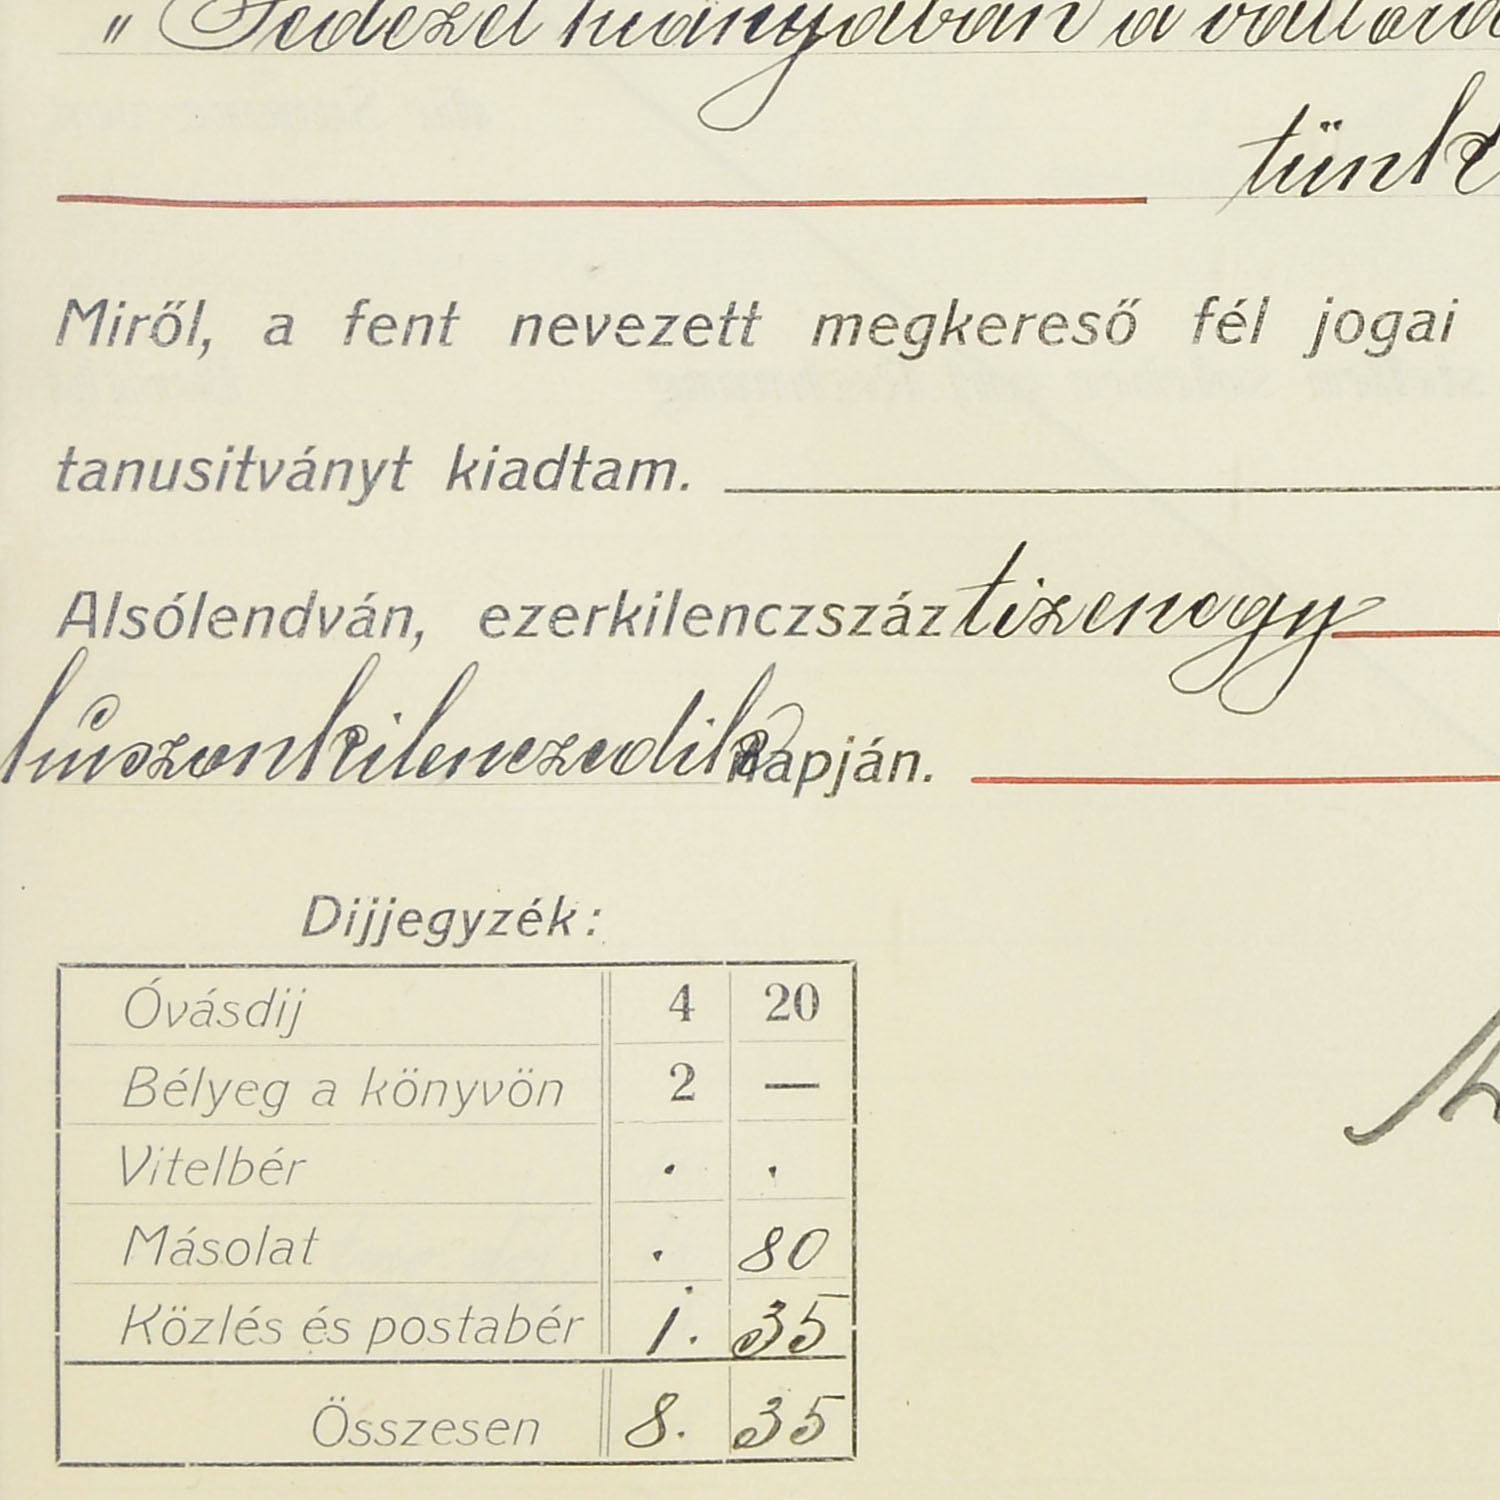 „ Fedezet hiányában a váltóra
tünk
Miről, a fent nevezett megkereső fél jogai
tanusitványt kiadtam.
Alsólendván, ezerkilenczszáz tizenegy
huszonkilenczedik napján.
Dijjegyzék:
Óvásdij 4 20
Bélyeg a könyvön 2 —
Vitelbér . .
Másolat . 80
Közlés és postabér 1. 35
Összesen 8. 35